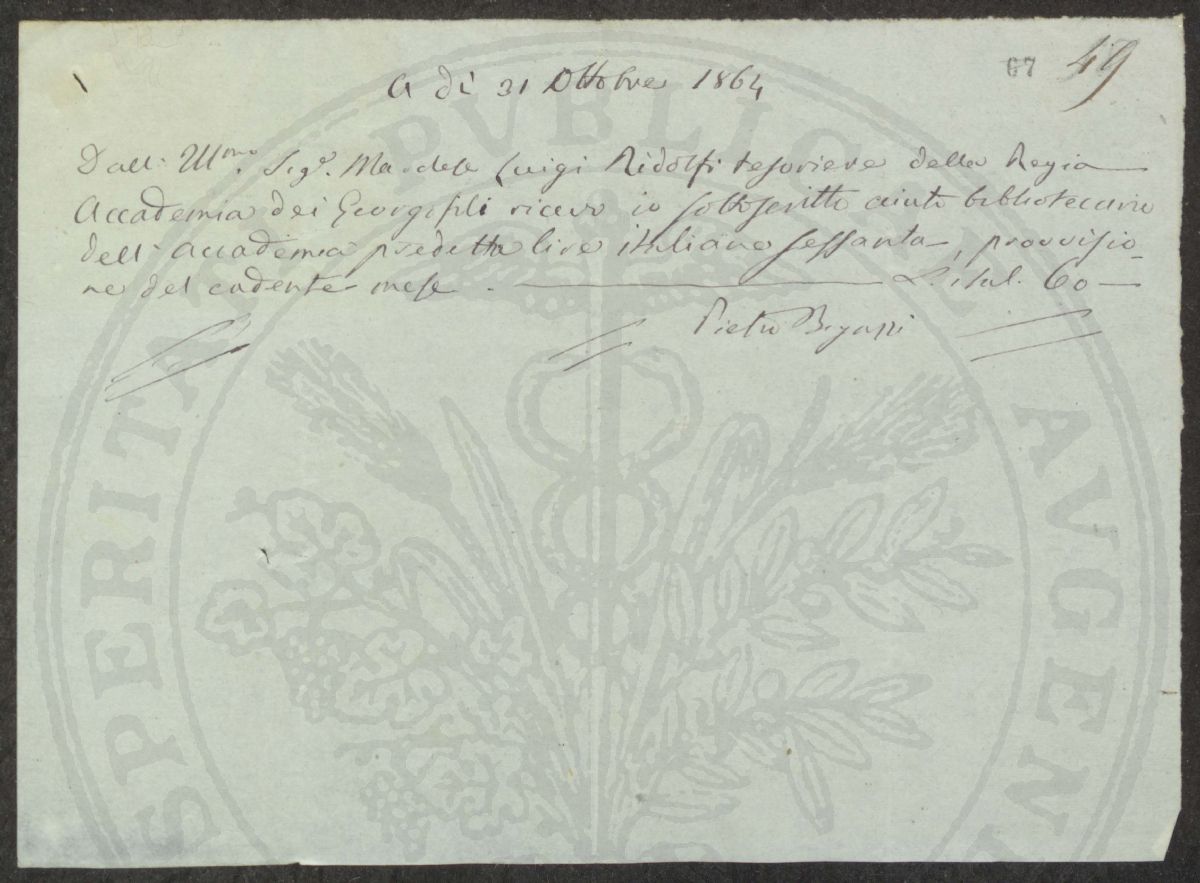 67 49
A dì 31 Ottobre 1864
Dall' Ill.mo Sig.r Marchese Luigi Ridolfi tesoriere della Regia
Accademia dei Georgofili ricevo io sottoscritto aiuto bibliotecario
dell' Accademia predetta lire italiane sessanta, provvisio-
ne del cadente mese. L. ital. 60
Pietro Bigazzi
SPERITAT PVBLICAE AVGEN